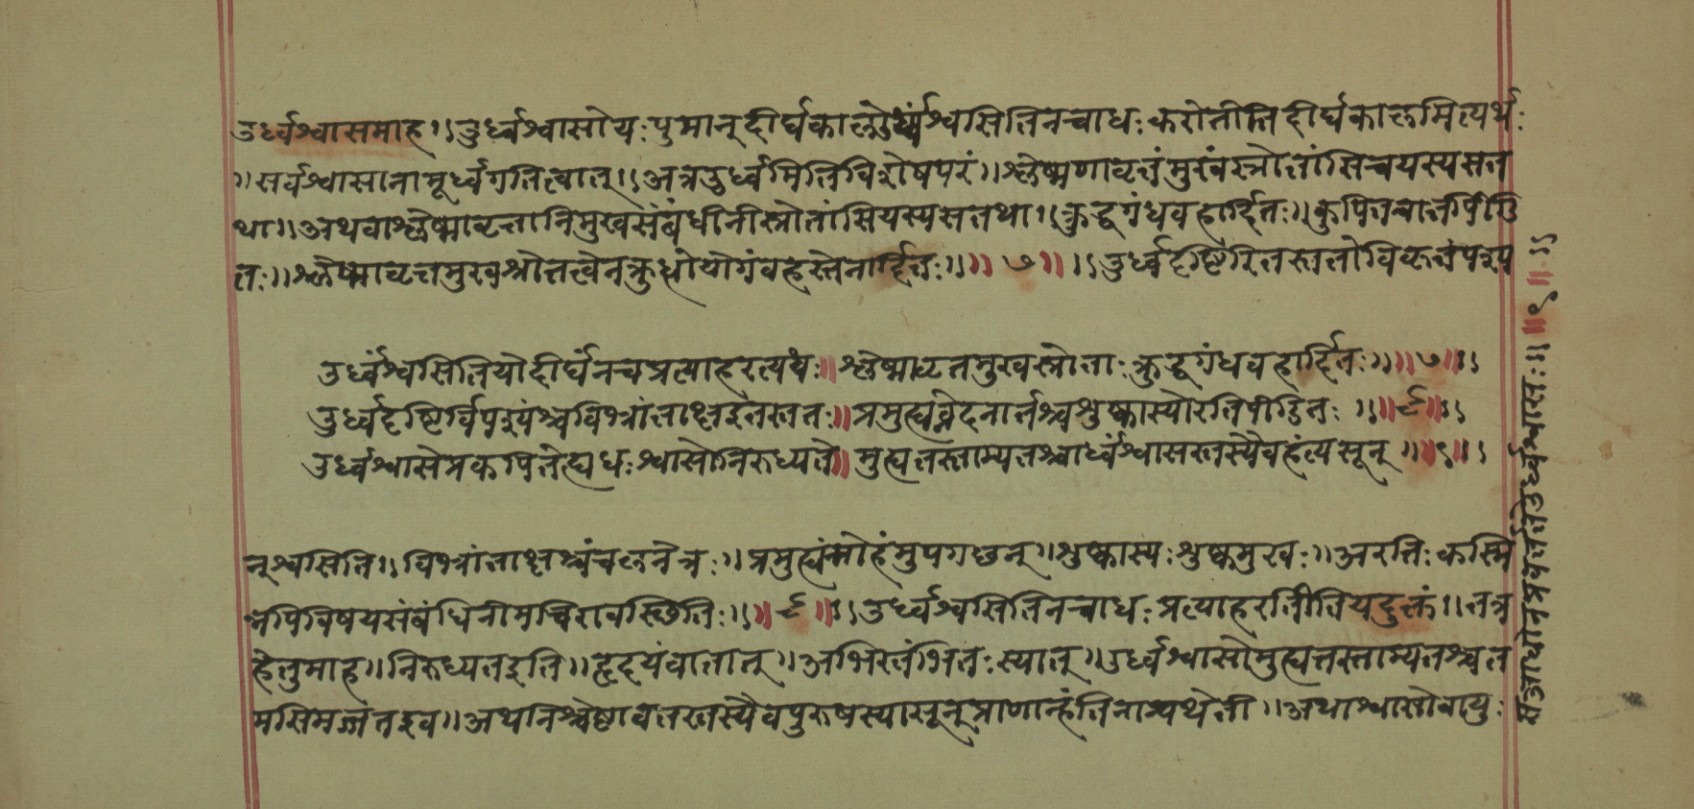 उर्ध्वश्वासमाह ।। उर्ध्वश्वासोयः पुमान् दीर्घकालं उर्ध्वंश्वसितिनचाधः करोतीति दीर्घकालमित्यर्थः
।। सर्वश्वासानामूर्ध्वगतित्वात् ।। अत्रउर्ध्वमितिविशेषपरं ।। श्लेष्मणावृत्तंमुखंस्त्रोतांसिचयस्यसत
था ।। अथवाश्लेष्मावृत्तानिमुखसंबंधीनीस्त्रोतांसियस्यसतथा ।। क्रुद्धगंधवहार्द्दितः ।। कुपितवातपीडि
तः ।। श्लेष्मावृत्तमुखश्रोतत्वेनक्रुधोयोगंवहस्तेनार्द्दितः ।। ।। ७ ।। ।। उर्ध्वदृष्टिरितस्ततोविकृतंपश्यप
उर्ध्वंश्वसितियोदीर्घंनचप्रत्याहरत्यधः ।। श्लेष्मावृतमुखस्त्रोताः क्रुद्धगंधवहार्द्दितः ।। ।। ७ ।। ।।
उर्ध्वदृष्टिर्विपश्यंश्चविभ्रांताक्षइतस्ततः ।। प्रमुह्यन्वेदनार्तश्चशुष्कास्योरतिपीडितः ।। ।। ८ ।। ।।
उर्ध्वश्वासेप्रकपितेह्यधःश्वासोनिरुध्यते ।। मुह्यतस्ताम्यतश्चोर्ध्वंश्वासस्तस्यैवहंत्यसून् ।। ।। ९ ।। ।।
न्श्वसिति ।। विभ्रांताक्षश्चंचलनेत्रः ।। प्रमुह्यंमोहंमुपगछन् ।। शुष्कास्यः शुष्कमुखः ।। अरतिः कस्मि
न्नपिविषयसंबंधिनीमचिरावस्छितिः ।। ।। ८ ।। ।। उर्ध्वश्वसितिनचाधः प्रत्याहरतीतियदुक्तं ।। तत्र
हेतुमाह ।। निरुध्यतइति ।। हृदयंवातात् ।। अभिस्तंभितः स्यात् ।। उर्ध्वश्वासोमुह्यतस्ताम्यतश्चत
मसिमज्जतइव ।। अथनिश्चेष्टावतस्तस्यैवपुरुषस्यासून् प्राणान्हंतिनान्यथेती ।। अथाश्वासोवायुः